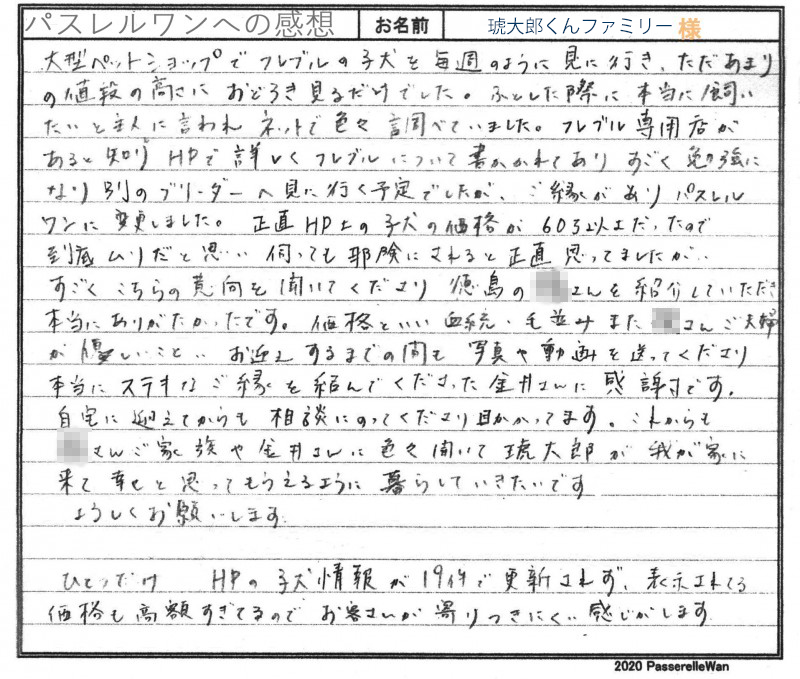 パスレルワンへの感想 お名前 琥太郎くんファミリー 様
大型ペットショップで フレブルの子犬を 毎週のように見に行き、ただあまり
の値段の高さに おどろき見るだけでした。ふとした際に 本当に飼い
たいと主人に言われ ネットで色々調べていました。フレブル専用店が
あると知り HPで詳しくフレブルについて書かかれてあり すごく勉強に
なり別のブリーダーへ見に行く予定でしたが、ご縁があり パスレル
ワンに変更しました。正直HP上の子犬の価格が 60万以上だったので
到底ムリだと思い 伺っても邪険にされると正直思ってましたが..
すごくこちらの意向を聞いてくださり 徳島の さんを紹介していただき
本当にありがたかったです。価格といい 血統 毛並みまた さんご夫婦
が優しいこと.. お迎えするまでの間も 写真や動画を送ってくださり
本当にステキなご縁を結んでくださった金井さんに感謝です。
自宅に迎えてからも 相談にのってくださり助かってます。これからも
さんご家族や金井さんに色々聞いて 琥太郎が 我が家に
来て幸せと思ってもらえるように 暮らしていきたいです
よろしくお願いします
ひとつだけ HPの子犬情報が19件で更新されず、表示されてる
価格も高額すぎてるので お客さんが寄りつきにくい感じがします
2020 PasserelleWan